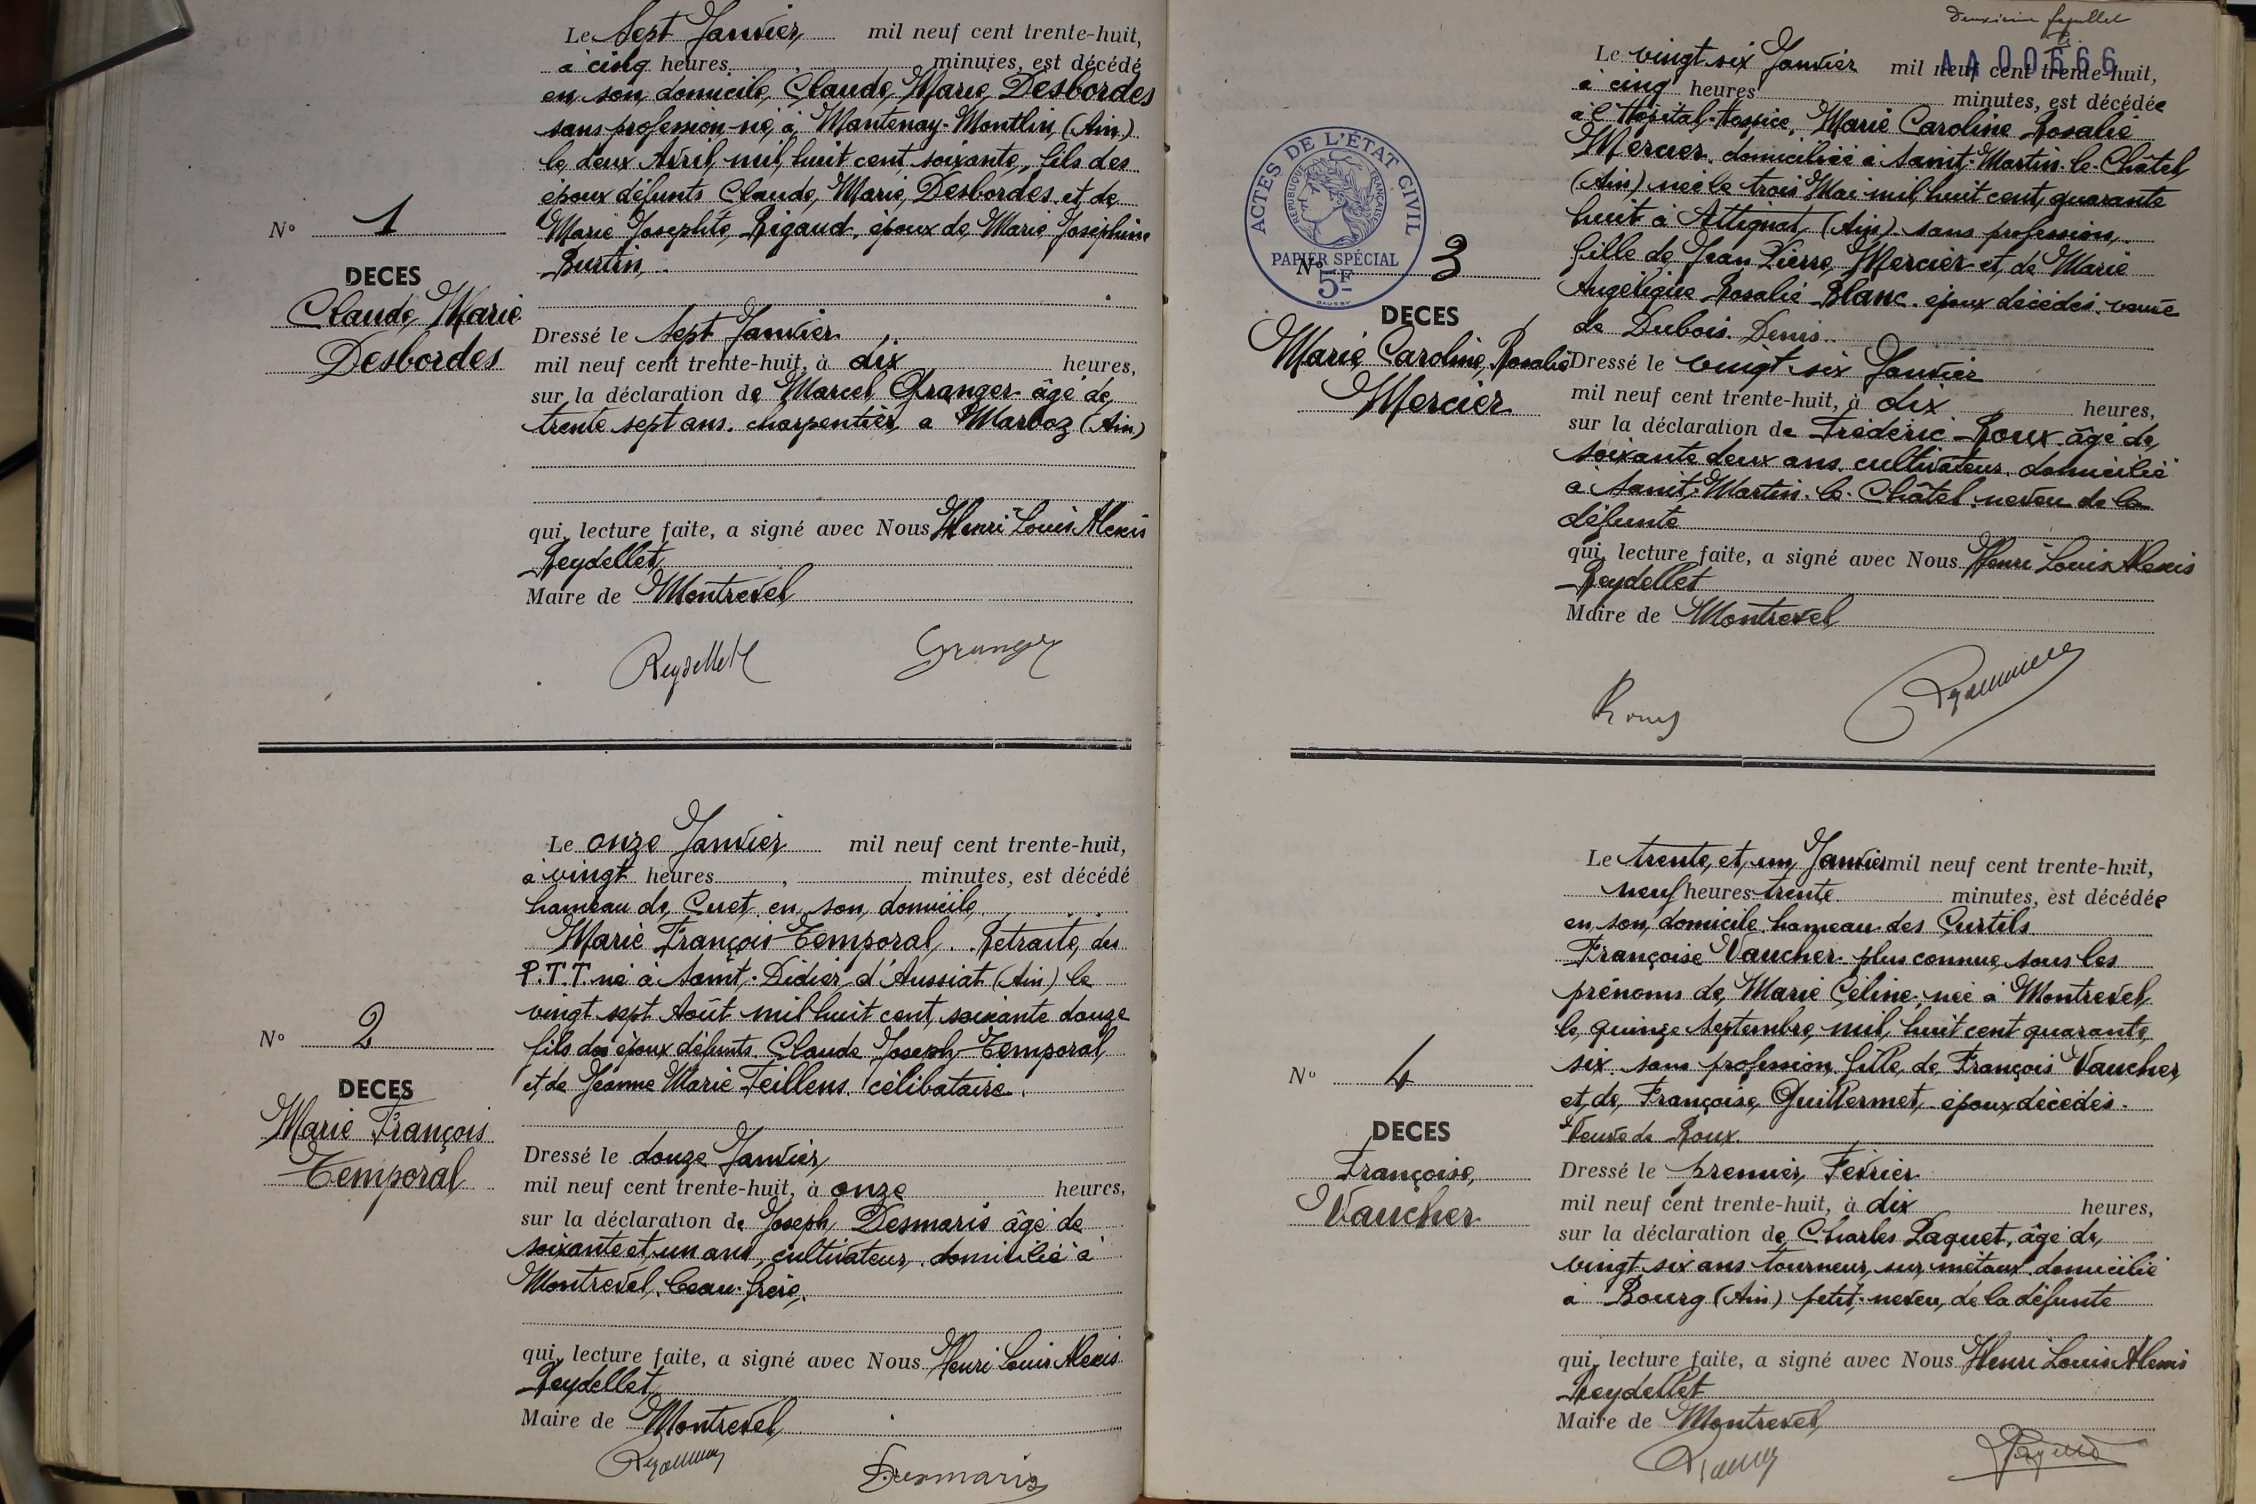 Le Sept Janvier mil neuf cent trente-huit,
à cinq heures minutes, est décédé
en son domicile, Claude, Marie, Desbordes
sans profession né, à Mantenay-Montlin, (Ain)
le deux Avril, mil, huit cent soixante, fils des
époux défunts Claude, Marie, Desbordes et de
Marie Josephte, Rigaud, époux de, Marie, Joséphine
Burtin,
N° 1
DECES
Claude, Marie
Desbordes
Dressé le Sept Janvier
mil neuf cent trente-huit, à dix heures,
sur la déclaration de Marcel Granger âgé de
trente sept ans, charpentier, à Marboz (Ain)
qui, lecture faite, a signé avec Nous Henri Louis Alexis
Reydellet
Maire de Montrevel
Reydellet Granger
Le onze Janvier mil neuf cent trente-huit,
à vingt heures minutes, est décédé
hameau de Cuet en son domicile
Marie François Temporal, Retraité des
P.T.T. né à Saint-Didier d'Aussiat (Ain) le
vingt sept Août mil huit cent soixante douze
fils des époux défunts Claude Joseph Temporal
et de Jeanne Marie Teillens. célibataire.
N° 2
DECES
Marie François
Temporal
Dressé le douze Janvier
mil neuf cent trente-huit, à onze heures,
sur la déclaration de Joseph Desmaris âgé de
soixante et un ans, cultivateur, domicilié à
Montrevel, beau-frère,
qui, lecture faite, a signé avec Nous Henri Louis Alexis
Reydellet
Maire de Montrevel
Desmaris
deuxième feuillet
AA 00666
Le vingt six Janvier mil neuf cent trente-huit,
à cinq heures minutes, est décédée
à l'Hôpital-Hospice, Marie Caroline Rosalie
Mercier domiciliée à Saint-Martin-le-Châtel
(Ain) née le trois Mai mil huit cent quarante
huit à Attignat (Ain) sans profession,
fille de Jean Pierre Mercier et de Marie
Angélique Rosalie Blanc époux décédés veuve
de Dubois Denis
ACTES DE L'ÉTAT CIVIL
RÉPUBLIQUE FRANÇAISE
PAPIER SPÉCIAL
5F
N° 3
DECES
Marie, Caroline, Rosalie
Mercier
Dressé le vingt six Janvier
mil neuf cent trente-huit, à dix heures,
sur la déclaration de Frédéric Roux âgé de
soixante deux ans cultivateur domicilié
à Saint-Martin-le-Châtel, neveu de la
défunte
qui, lecture faite, a signé avec Nous Henri Louis Alexis
Reydellet
Maire de Montrevel
Roux
Le trente, et, un, Janvier mil neuf cent trente-huit,
neuf heures trente minutes, est décédée
en son domicile hameau des Curtils
Françoise Vaucher plus connue sous les
prénoms de Marie Céline, née à Montrevel
le quinze Septembre, mil, huit cent quarante,
six sans profession, fille, de François Vaucher,
et, de, Françoise Guillermet, époux décédés.
Veuve de Roux.
N° 4
DECES
Françoise,
Vaucher
Dressé le premier Février
mil neuf cent trente-huit, à dix heures,
sur la déclaration de Charles Paquet, âgé de
vingt six ans tourneur, sur métaux domicilié
à Bourg (Ain) petit-neveu, de la défunte
qui, lecture faite, a signé avec Nous Henri Louis Alexis
Reydellet
Maire de Montrevel